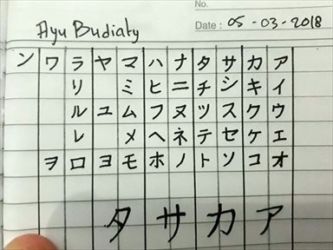 No.
Date : 05-03-2018
Ayu Budiaty
ン ワ ラ ヤ マ ハ ナ タ サ カ ア
リ ミ ヒ ニ チ シ キ イ
ル ユ ム フ ヌ ツ ス ク ウ
レ メ ヘ ネ テ セ ケ エ
ヲ ロ ヨ モ ホ ノ ト ソ コ オ
タ サ カ ア